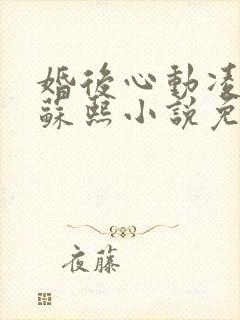 婚後心動凌
蘇熙小說免
夜藤